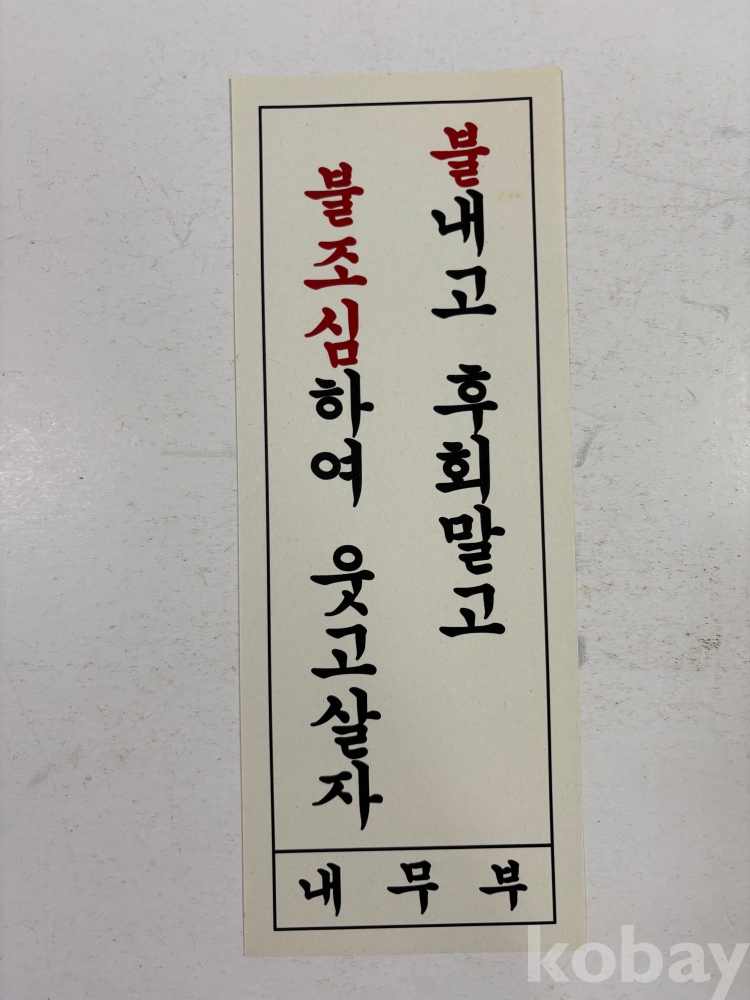 불내고 후회말고
불조심하여 웃고살자
내무부
kobay